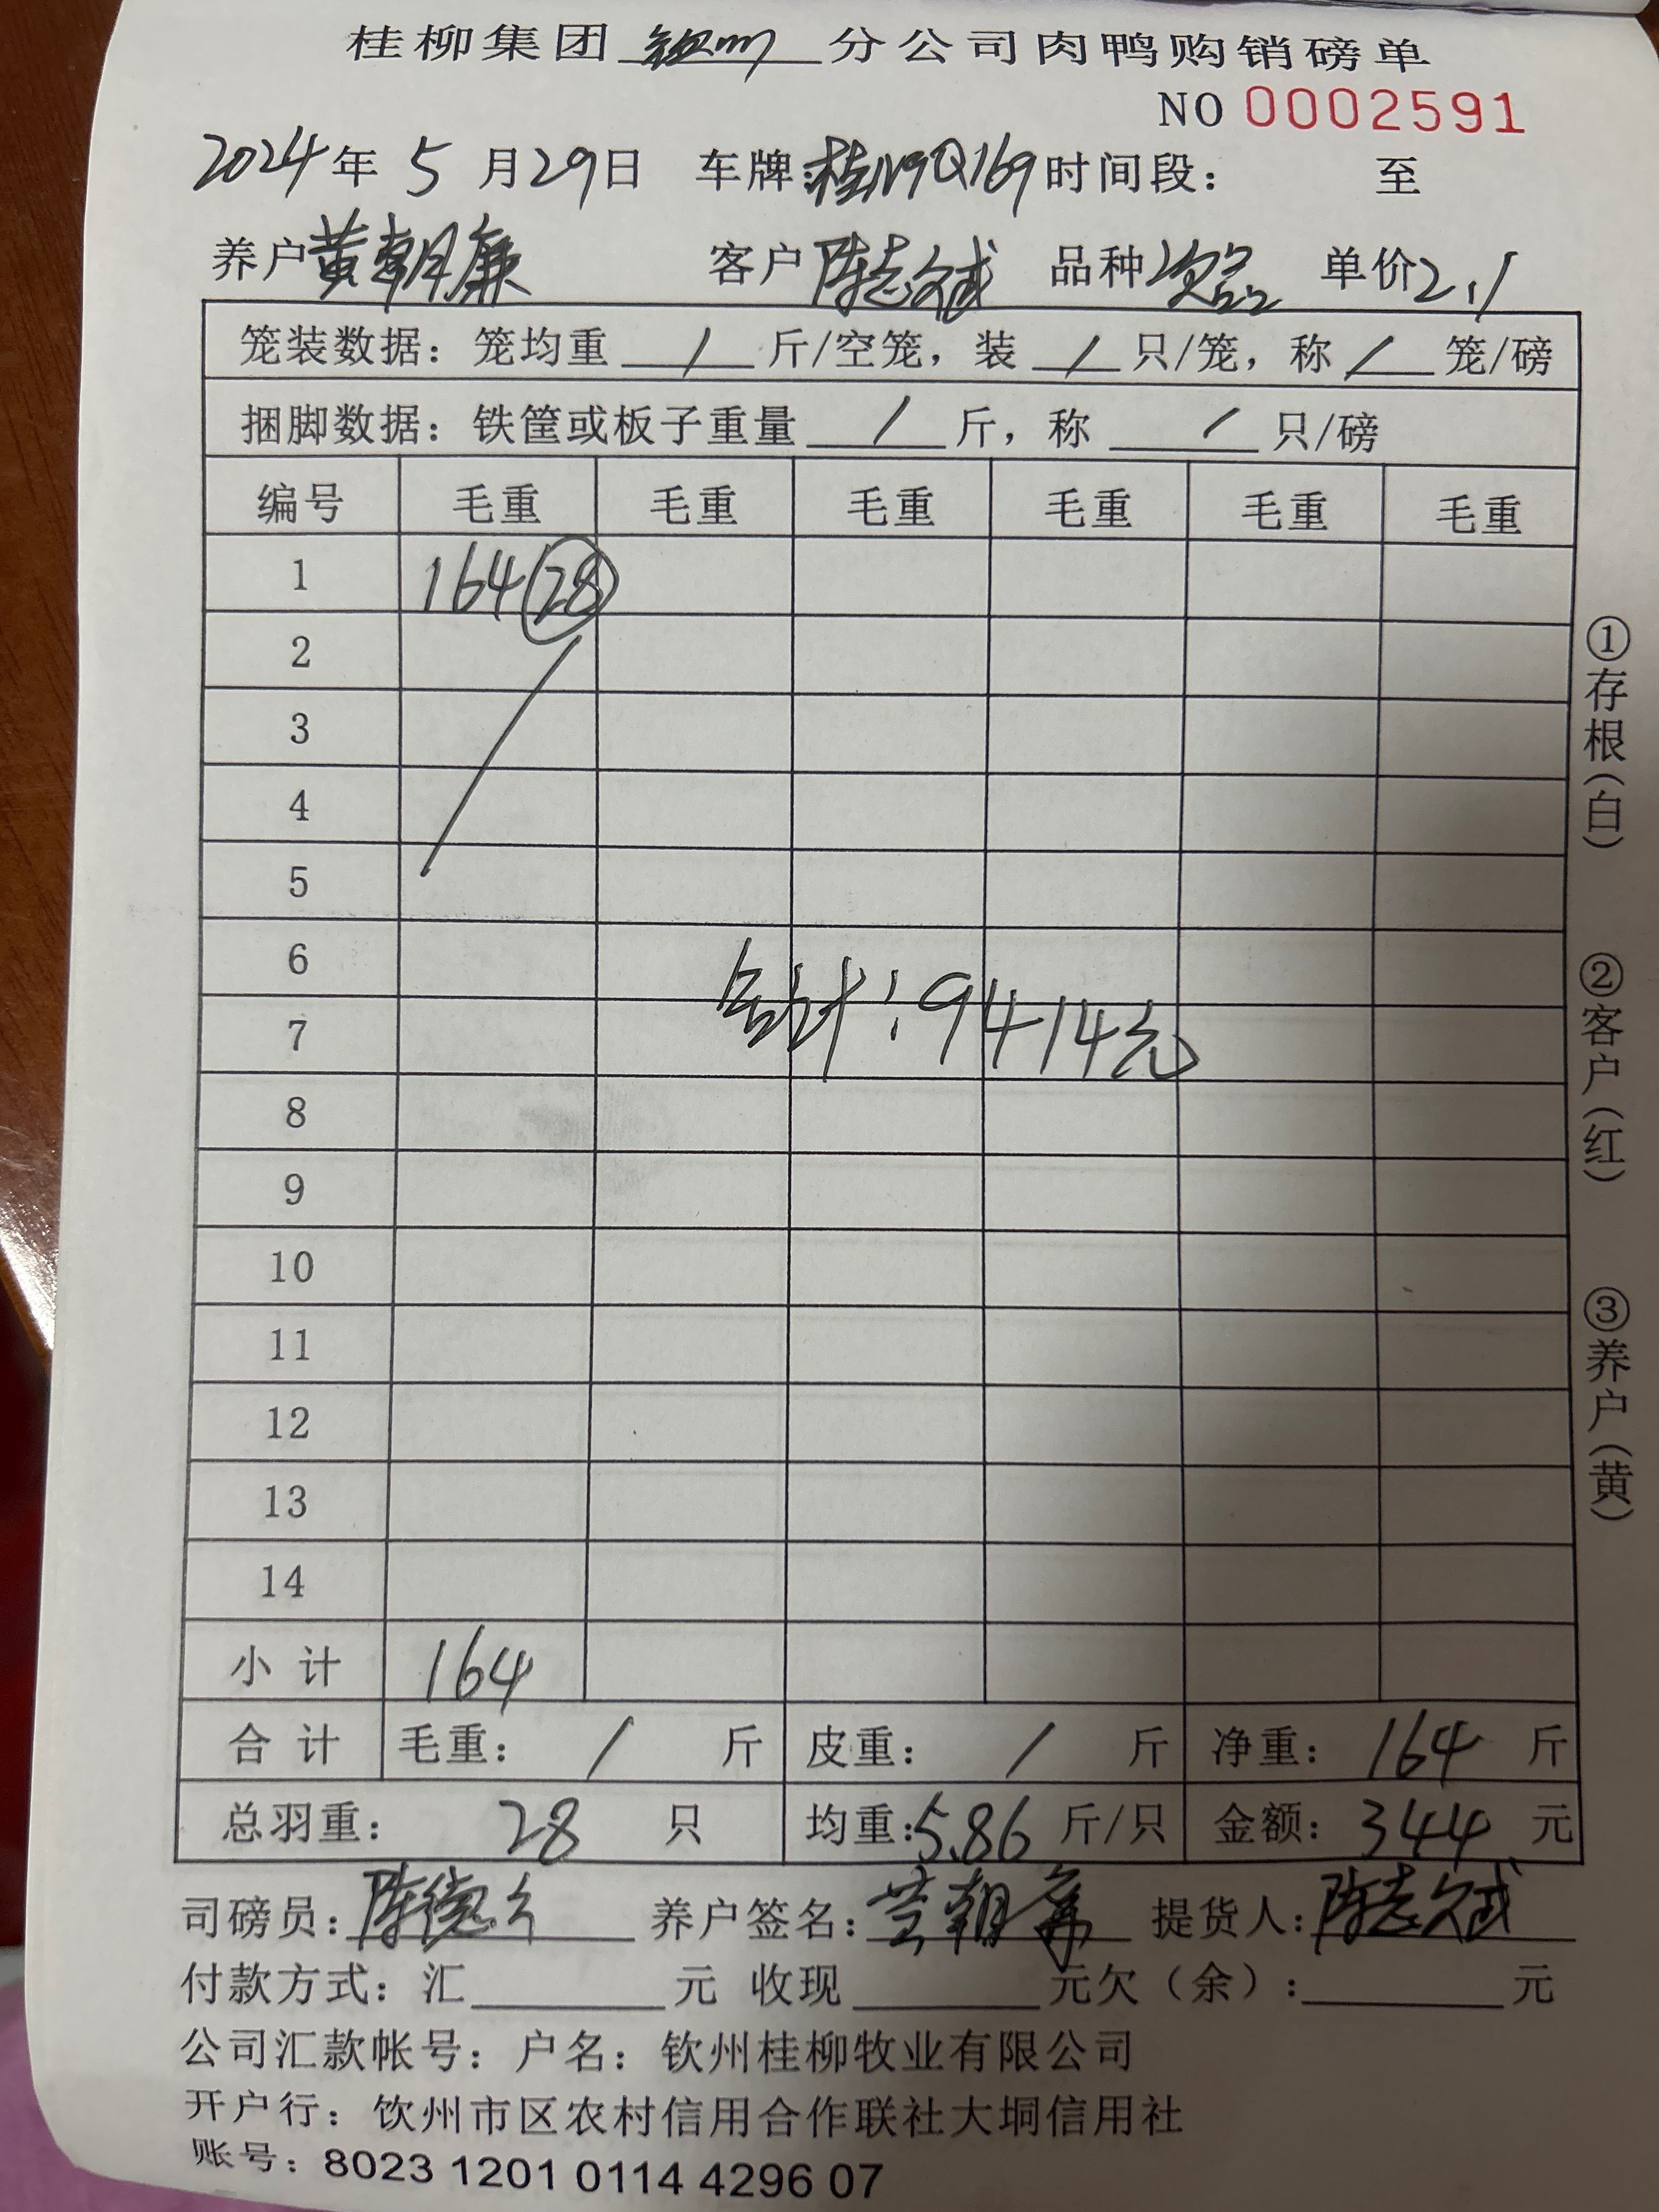 桂柳集团钦州分公司肉鸭购销磅单
NO 0002591
2024年5月29日 车牌:桂N9Q169时间段: 至
养户黄朝廉 客户陈志斌 品种次品 单价2.1
笼装数据:笼均重 / 斤/空笼,装 / 只/笼,称 / 笼/磅
捆脚数据:铁筐或板子重量 / 斤,称 / 只/磅
编号 毛重 毛重 毛重 毛重 毛重 毛重
1 164 28
2
3
4
5
6
7
合计:9414元
8
9
10
11
12
13
14
小计 164
合计 毛重: / 斤 皮重: / 斤 净重:164斤
总羽重:28只 均重:5.86斤/只 金额:344元
司磅员:陈德 养户签名:黄朝廉 提货人:陈志斌
付款方式:汇 元 收现 元欠(余): 元
公司汇款帐号:户名:钦州桂柳牧业有限公司
开户行:钦州市区农村信用合作联社大垌信用社
账号:8023 1201 0114 4296 07
①存根(白)
②客户(红)
③养户(黄)